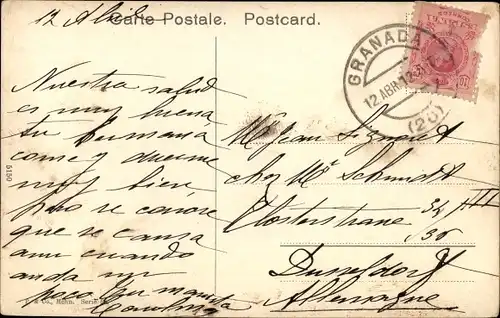 12 Abril
Carte Postale. Postcard.
GRANADA
12 ABR 12
(20)
Nuestra salud
es muy buena
tu hermana
come y duerme
muy bien
pero se conoce
que se cansa
aun cuando
anda muy
poco
Mr Jean
chez Mr Schmidt
Klosterstrasse 34 III
36
Dusseldorf
Allemagne
5150
& Co., Serie